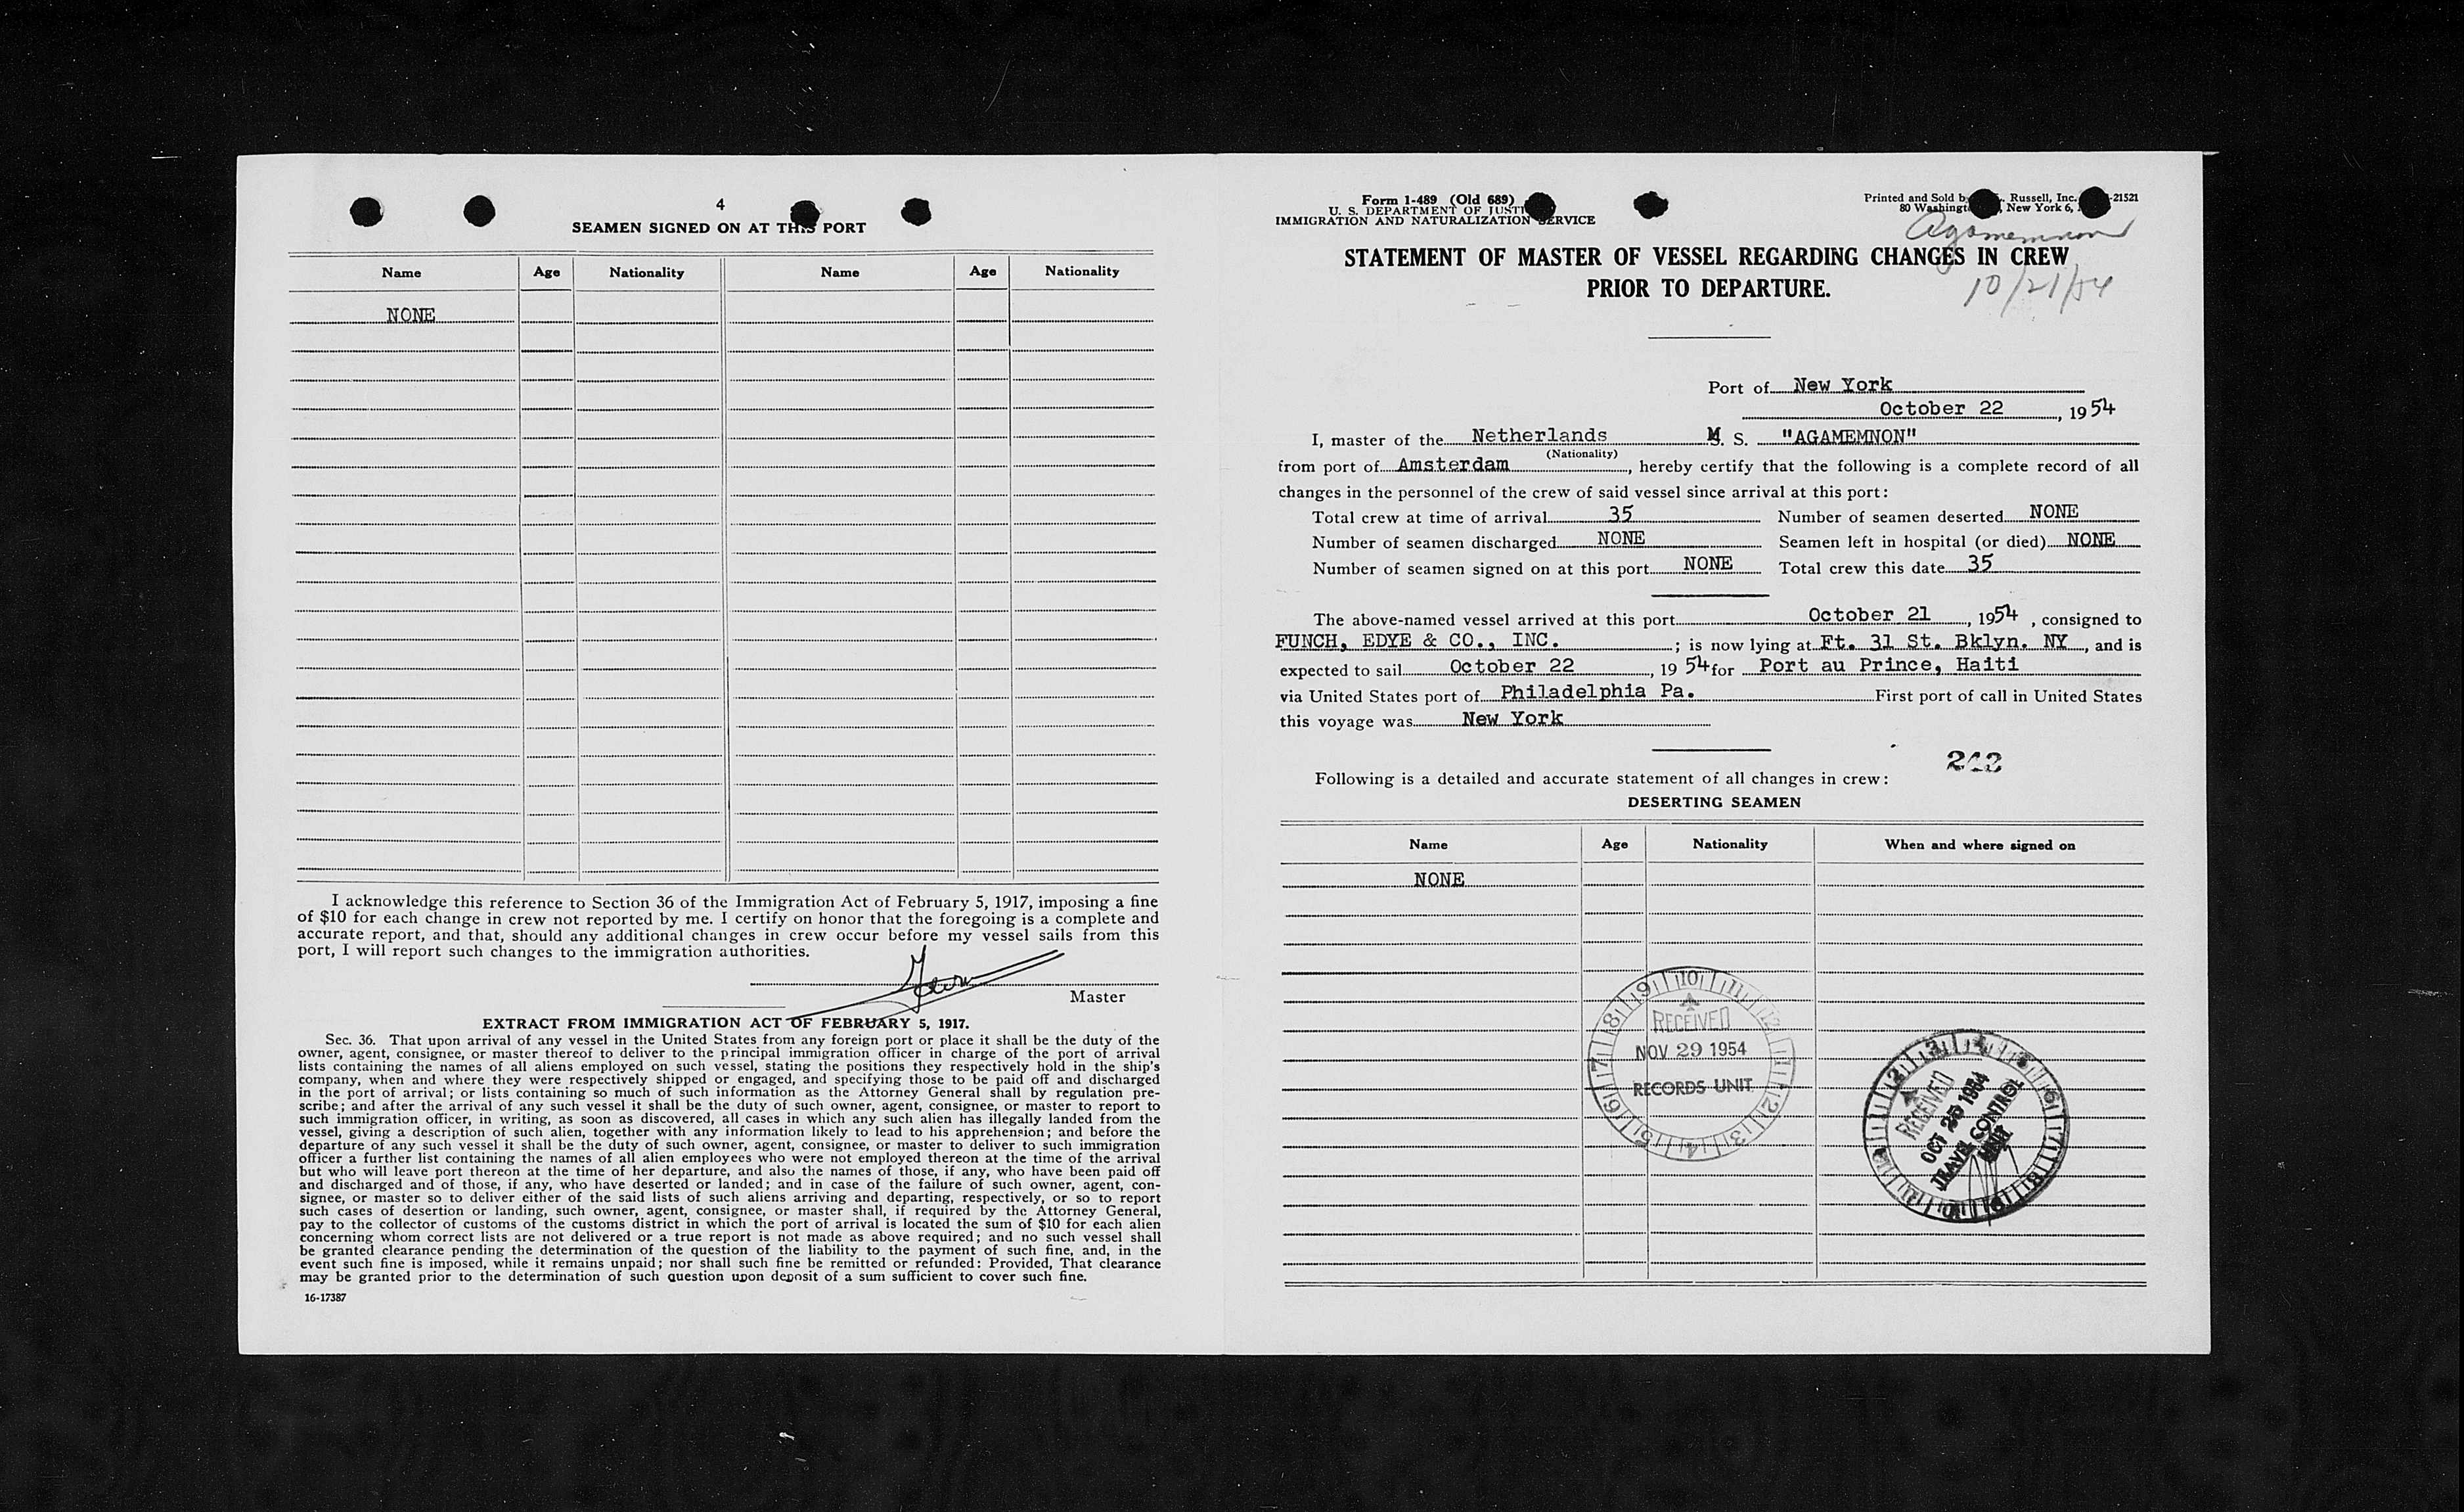 4
SEAMEN SIGNED ON AT THIS PORT
Name Age Nationality Name Age Nationality
NONE
I acknowledge this reference to Section 36 of the Immigration Act of February 5, 1917, imposing a fine
of $10 for each change in crew not reported by me. I certify on honor that the foregoing is a complete and
accurate report, and that, should any additional changes in crew occur before my vessel sails from this
port, I will report such changes to the immigration authorities.
Master
EXTRACT FROM IMMIGRATION ACT OF FEBRUARY 5, 1917.
Sec. 36. That upon arrival of any vessel in the United States from any foreign port or place it shall be the duty of the
owner, agent, consignee, or master thereof to deliver to the principal immigration officer in charge of the port of arrival
lists containing the names of all aliens employed on such vessel, stating the positions they respectively hold in the ship's
company, when and where they were respectively shipped or engaged, and specifying those to be paid off and discharged
in the port of arrival; or lists containing so much of such information as the Attorney General shall by regulation pre-
scribe; and after the arrival of any such vessel it shall be the duty of such owner, agent, consignee, or master to report to
such immigration officer, in writing, as soon as discovered, all cases in which any such alien has illegally landed from the
vessel, giving a description of such alien, together with any information likely to lead to his apprehension; and before the
departure of any such vessel it shall be the duty of such owner, agent, consignee, or master to deliver to such immigration
officer a further list containing the names of all alien employees who were not employed thereon at the time of the arrival
but who will leave port thereon at the time of her departure, and also the names of those, if any, who have been paid off
and discharged and of those, if any, who have deserted or landed; and in case of the failure of such owner, agent, con-
signee, or master so to deliver either of the said lists of such aliens arriving and departing, respectively, or so to report
such cases of desertion or landing, such owner, agent, consignee, or master shall, if required by the Attorney General,
pay to the collector of customs of the customs district in which the port of arrival is located the sum of $10 for each alien
concerning whom correct lists are not delivered or a true report is not made as above required; and no such vessel shall
be granted clearance pending the determination of the question of the liability to the payment of such fine, and, in the
event such fine is imposed, while it remains unpaid; nor shall such fine be remitted or refunded: Provided, That clearance
may be granted prior to the determination of such question upon deposit of a sum sufficient to cover such fine.
16-17387
Form 1-489 (Old 689)
U. S. DEPARTMENT OF JUSTI
IMMIGRATION AND NATURALIZATION SERVICE
Printed and Sold b . Russell, Inc. -21521
80 Washingt , New York 6,
Agamemnon
10/21/54
STATEMENT OF MASTER OF VESSEL REGARDING CHANGES IN CREW
PRIOR TO DEPARTURE.
Port of New York
October 22, 1954
I, master of the Netherlands M. S. "AGAMEMNON"
(Nationality)
from port of Amsterdam, hereby certify that the following is a complete record of all
changes in the personnel of the crew of said vessel since arrival at this port:
Total crew at time of arrival 35 Number of seamen deserted NONE
Number of seamen discharged NONE Seamen left in hospital (or died) NONE
Number of seamen signed on at this port NONE Total crew this date 35
The above-named vessel arrived at this port October 21, 1954, consigned to
FUNCH, EDYE & CO., INC. ; is now lying at Ft. 31 St. Bklyn. NY, and is
expected to sail October 22, 1954 for Port au Prince, Haiti
via United States port of Philadelphia Pa. First port of call in United States
this voyage was New York
Following is a detailed and accurate statement of all changes in crew:
DESERTING SEAMEN
Name Age Nationality When and where signed on
NONE
RECEIVED
NOV 29 1954
RECORDS UNIT
RECEIVED
OCT 25 1954
TRAVEL CONTROL
UNIT